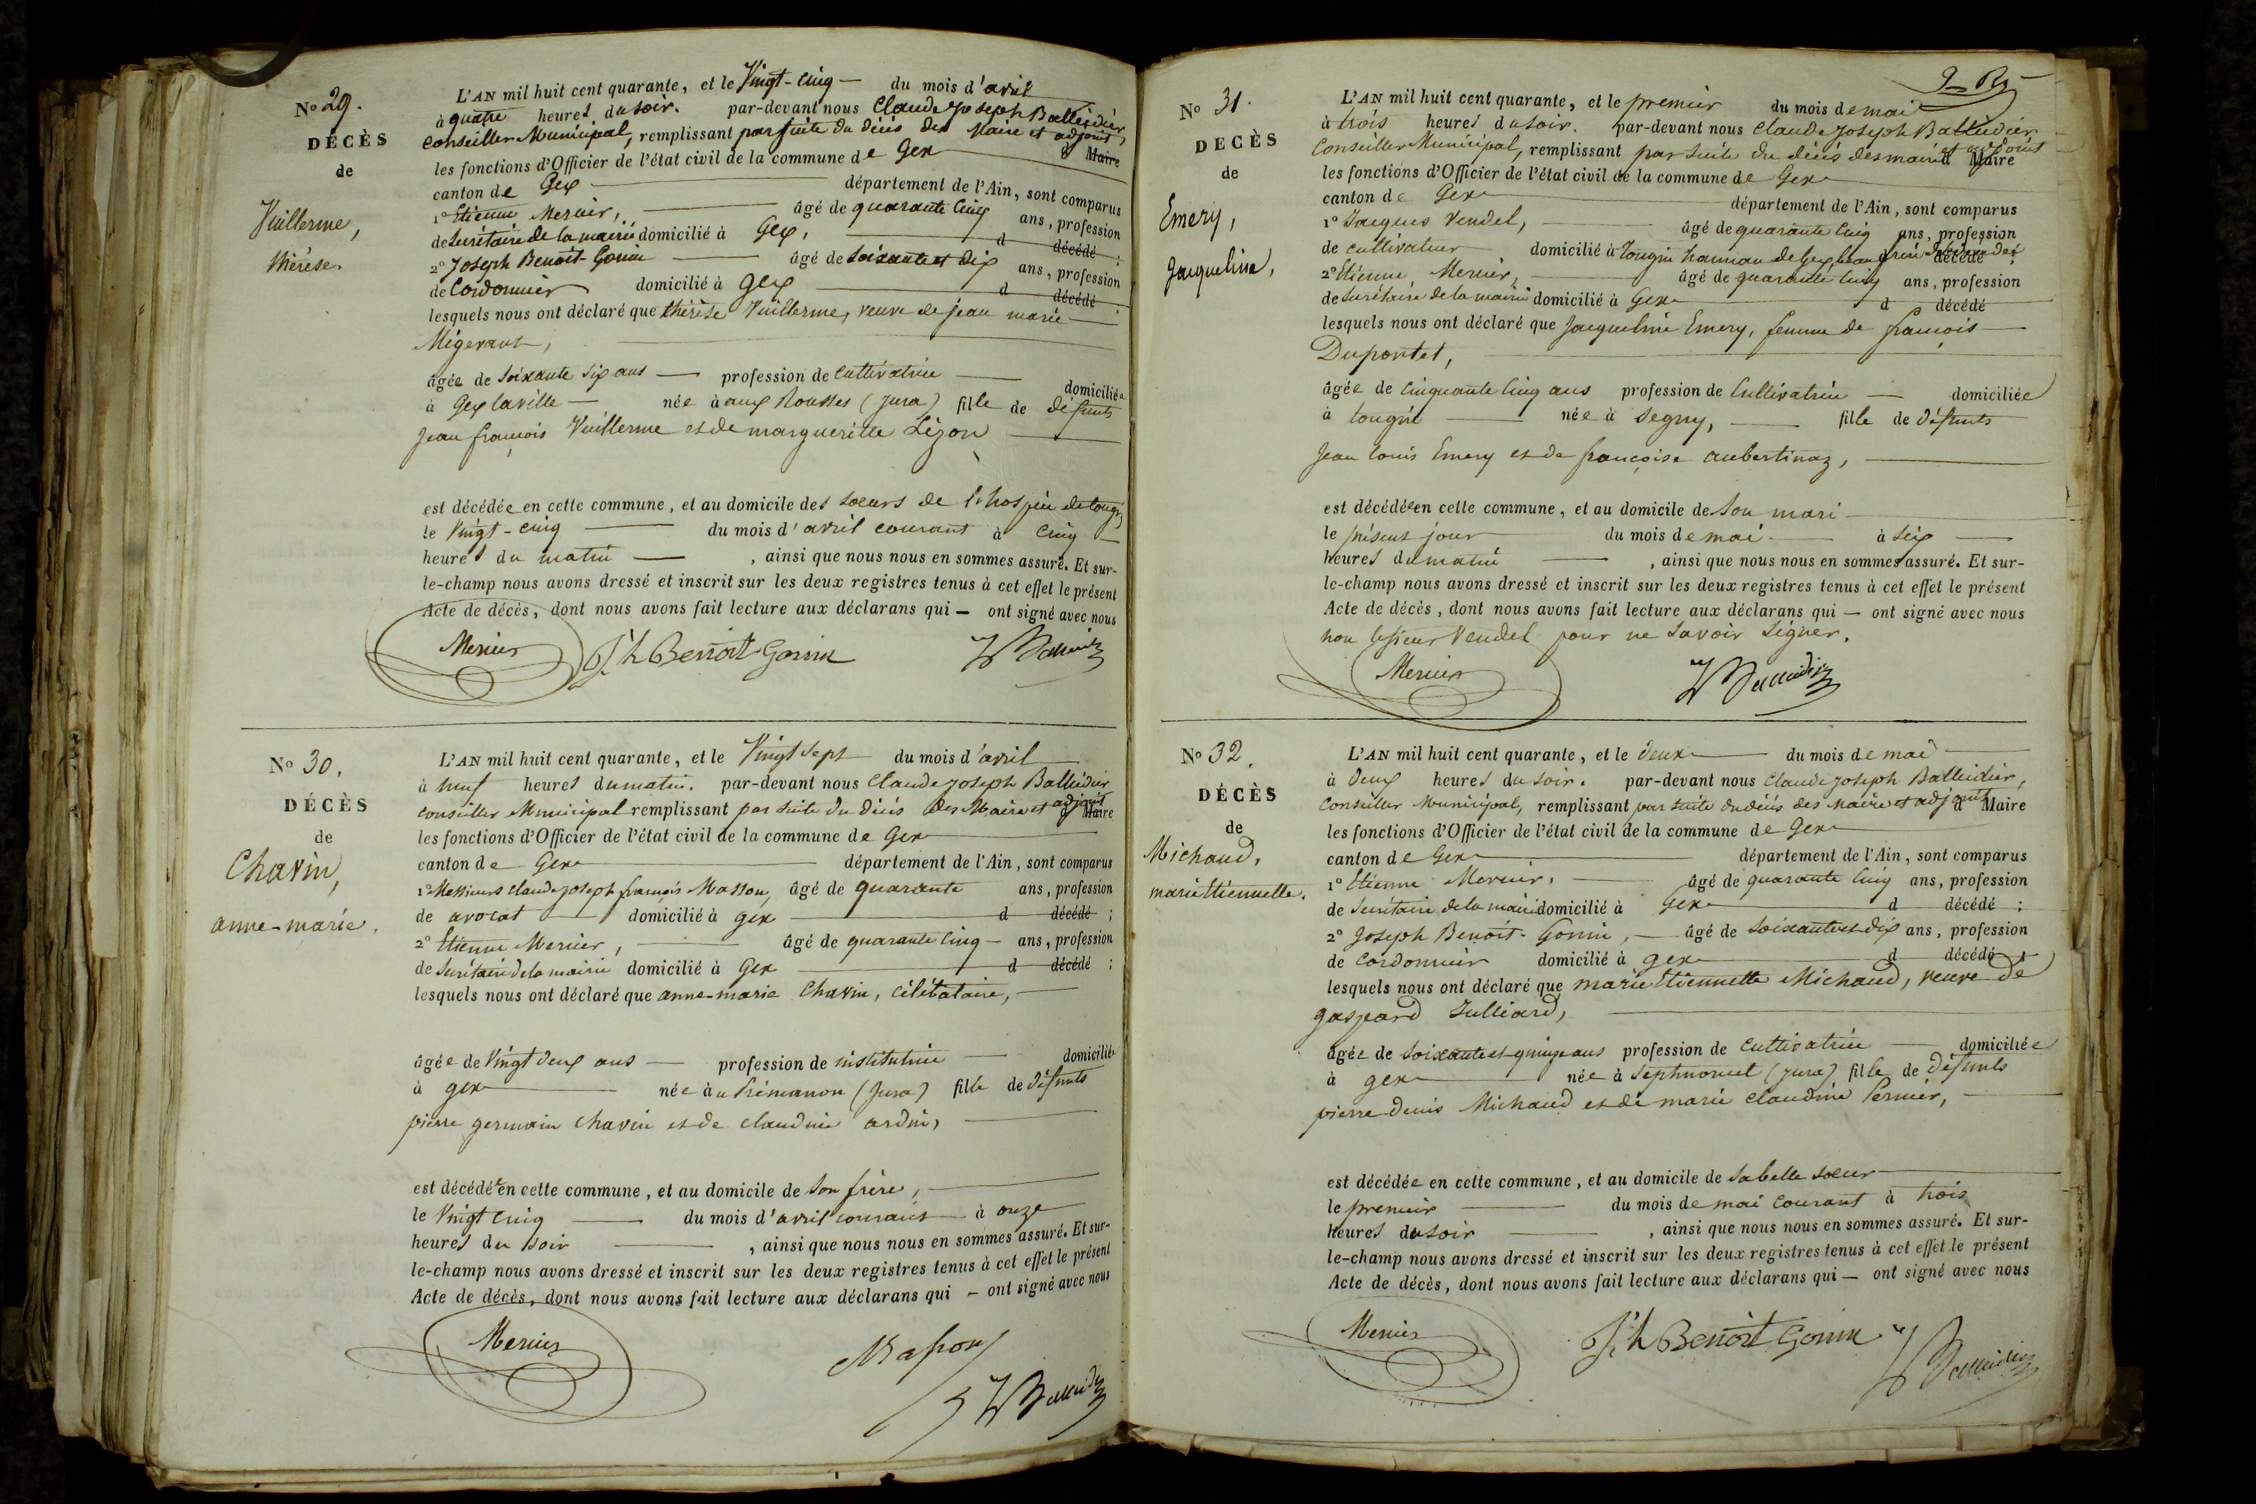 N° 29.
DÉCÈS
de
Vuillerme,
thérèse.
L'AN mil huit cent quarante, et le Vingt-cinq — du mois d'avril
à quatre heures du soir. par-devant nous Claude Joseph Balleidier,
conseiller Municipal, remplissant par suite du décès des Maire et adjoint, d Maire
les fonctions d'Officier de l'état civil de la commune de Gex
canton de Gex département de l'Ain, sont comparus
1° Etienne Mercier, âgé de quarante cinq ans, profession
de secrétaire de la mairie domicilié à Gex, d décédé ;
2° Joseph Benoit-Gonin âgé de soixante et dix ans, profession
de Cordonnier domicilié à Gex d décédé ;
lesquels nous ont déclaré que thérèse Vuillerme, veuve de jean marie
Mégevant,
âgée de soixante six ans — profession de cultivatrice — domiciliée
à Gex la ville — née à aux Rousses (jura) fille de défunts
Jean françois Vuillerme et de margueritte Lizon
est décédée en cette commune, et au domicile des soeurs de l'hospice de tougin
le Vingt-cinq du mois d'avril courant à cinq
heures du matin —, ainsi que nous nous en sommes assuré. Et sur-
le-champ nous avons dressé et inscrit sur les deux registres tenus à cet effet le présent
Acte de décès, dont nous avons fait lecture aux déclarans qui — ont signé avec nous
Mercier Jh Benoit Gonin Balleidier
N° 30.
DÉCÈS
de
Chavin,
anne-marie.
L'AN mil huit cent quarante, et le Vingt sept du mois d'avril
à neuf heures du matin. par-devant nous Claude Joseph Balleidier
conseiller Municipal remplissant par suite du décès des Maire et adjoint d Maire
les fonctions d'Officier de l'état civil de la commune de Gex
canton de Gex département de l'Ain, sont comparus
1° Messieurs claude joseph françois Masson, âgé de quarante ans, profession
de avocat domicilié à Gex d décédé ;
2° Etienne Mercier, âgé de quarante cinq — ans, profession
de secrétaire de la mairie domicilié à Gex d décédé ;
lesquels nous ont déclaré que anne-marie Chavin, célibataire,
âgée de Vingt deux ans — profession de institutrice — domiciliée
à gex née à u Prémanon (jura) fille de défunts
pierre germain chavin et de claudine ardin,
est décédée en cette commune, et au domicile de son frère,
le Vingt cinq du mois d'avril courant à onze
heures du soir, ainsi que nous nous en sommes assuré. Et sur-
le-champ nous avons dressé et inscrit sur les deux registres tenus à cet effet le présent
Acte de décès, dont nous avons fait lecture aux déclarans qui — ont signé avec nous
Mercier Masson Balleidier
N° 31.
DÉCÈS
de
Emery,
Jacqueline,
L'AN mil huit cent quarante, et le premier du mois de mai
à trois heures du soir. par-devant nous Claude Joseph Balleidier
Conseiller Municipal, remplissant par suite du décès des maire et adjoint d Maire
les fonctions d'Officier de l'état civil de la commune de Gex
canton de Gex département de l'Ain, sont comparus
1° Jacques Vendel, âgé de quarante cinq ans, profession
de cultivateur domicilié à tougin hameau de Gex beau frère de la décédée ;
2° Etienne Mercier, âgé de quarante cinq ans, profession
de secrétaire de la mairie domicilié à Gex d décédé
lesquels nous ont déclaré que Jacqueline Emery, femme de françois
Dupontet,
âgée de cinquante cinq ans profession de Cultivatrice — domiciliée
à tougin née à segny, fille de défunts
Jean louis Emery et de françoise aubertinaz,
est décédée en cette commune, et au domicile de son mari
le présent jour du mois de mai à six
heures du matin, ainsi que nous nous en sommes assuré. Et sur-
le-champ nous avons dressé et inscrit sur les deux registres tenus à cet effet le présent
Acte de décès, dont nous avons fait lecture aux déclarans qui — ont signé avec nous
non le sieur Vendel pour ne savoir signer.
Mercier Balleidier
N° 32.
DÉCÈS
de
Michaud,
marie Etiennette.
L'AN mil huit cent quarante, et le deux du mois de mai
à deux heures du soir. par-devant nous Claude Joseph Balleidier,
Conseiller Municipal, remplissant par suite du décès des maire et adjoint d Maire
les fonctions d'Officier de l'état civil de la commune de Gex
canton de Gex département de l'Ain, sont comparus
1° Etienne Mercier, âgé de quarante cinq ans, profession
de secrétaire de la mairie domicilié à Gex d décédé ;
2° Joseph Benoit-Gonin, — âgé de soixante et dix ans, profession
de cordonnier domicilié à gex d décédé ;
lesquels nous ont déclaré que marie Etiennette Michaud, veuve de
gaspard Julliard,
âgée de soixante et quinze ans profession de cultivatrice — domiciliée
à gex née à septmoncel (jura) fille de défunts
pierre denis Michaud et de marie claudine Pernier,
est décédée en cette commune, et au domicile de sa belle soeur
le premier du mois de mai courant à trois
heures du soir, ainsi que nous nous en sommes assuré. Et sur-
le-champ nous avons dressé et inscrit sur les deux registres tenus à cet effet le présent
Acte de décès, dont nous avons fait lecture aux déclarans qui — ont signé avec nous
Mercier Jh Benoit Gonin Balleidier